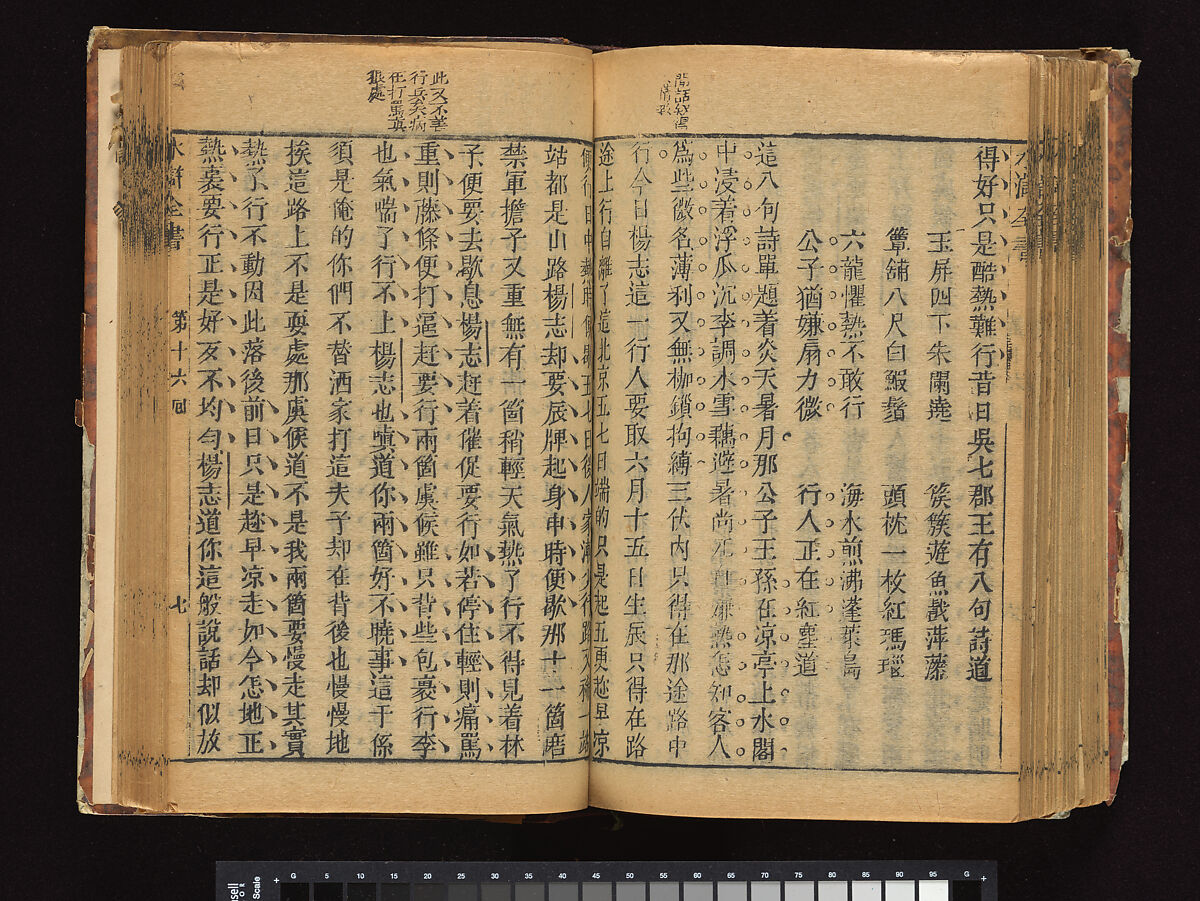 閒話
得好只是酷熱難行昔日吳七郡王有八句詩道
玉屏四下朱闌遶　簇簇遊魚戲萍藻
簟鋪八尺白鰕鬚　頭枕一枚紅瑪瑙
六龍懼熱不敢行　海水煎沸蓬萊島
公子猶嫌扇力微　行人正在紅塵道
這八句詩單題着炎天暑月那公子王孫在凉亭上水閣
中浸着浮瓜沉李調冰雪藕避暑尚不嫌熱怎知客人
爲些微名薄利又無枷鎖拘縛三伏內只得在那途路中
行今日楊志這一行人要取六月十五日生辰只得在路
途上行自離了這北京五七日端的只是起五更趂早凉
便行日中熱時便歇五七日後人家漸少行路又稀一站
站都是山路楊志却要辰牌起身申時便歇那十一箇廂
禁軍擔子又重無有一箇稍輕天氣熱了行不得見着林
子便要去歇息楊志赶着催促要行如若停住輕則痛罵
重則藤條便打逼赶要行兩箇虞候雖只背些包裹行李
也氣喘了行不上楊志也嗔道你兩箇好不曉事這干係
須是俺的你們不替洒家打這夫子却在背後也慢慢地
挨這路上不是耍處那虞候道不是我兩箇要慢走其實
熱了行不動因此落後前日只是趂早凉走如今怎地正
熱裏要行正是好歹不均勻楊志道你這般說話却似放
此又不善
行兵矣病
在打罵眞
狠處
水滸全書
第十六囘
七